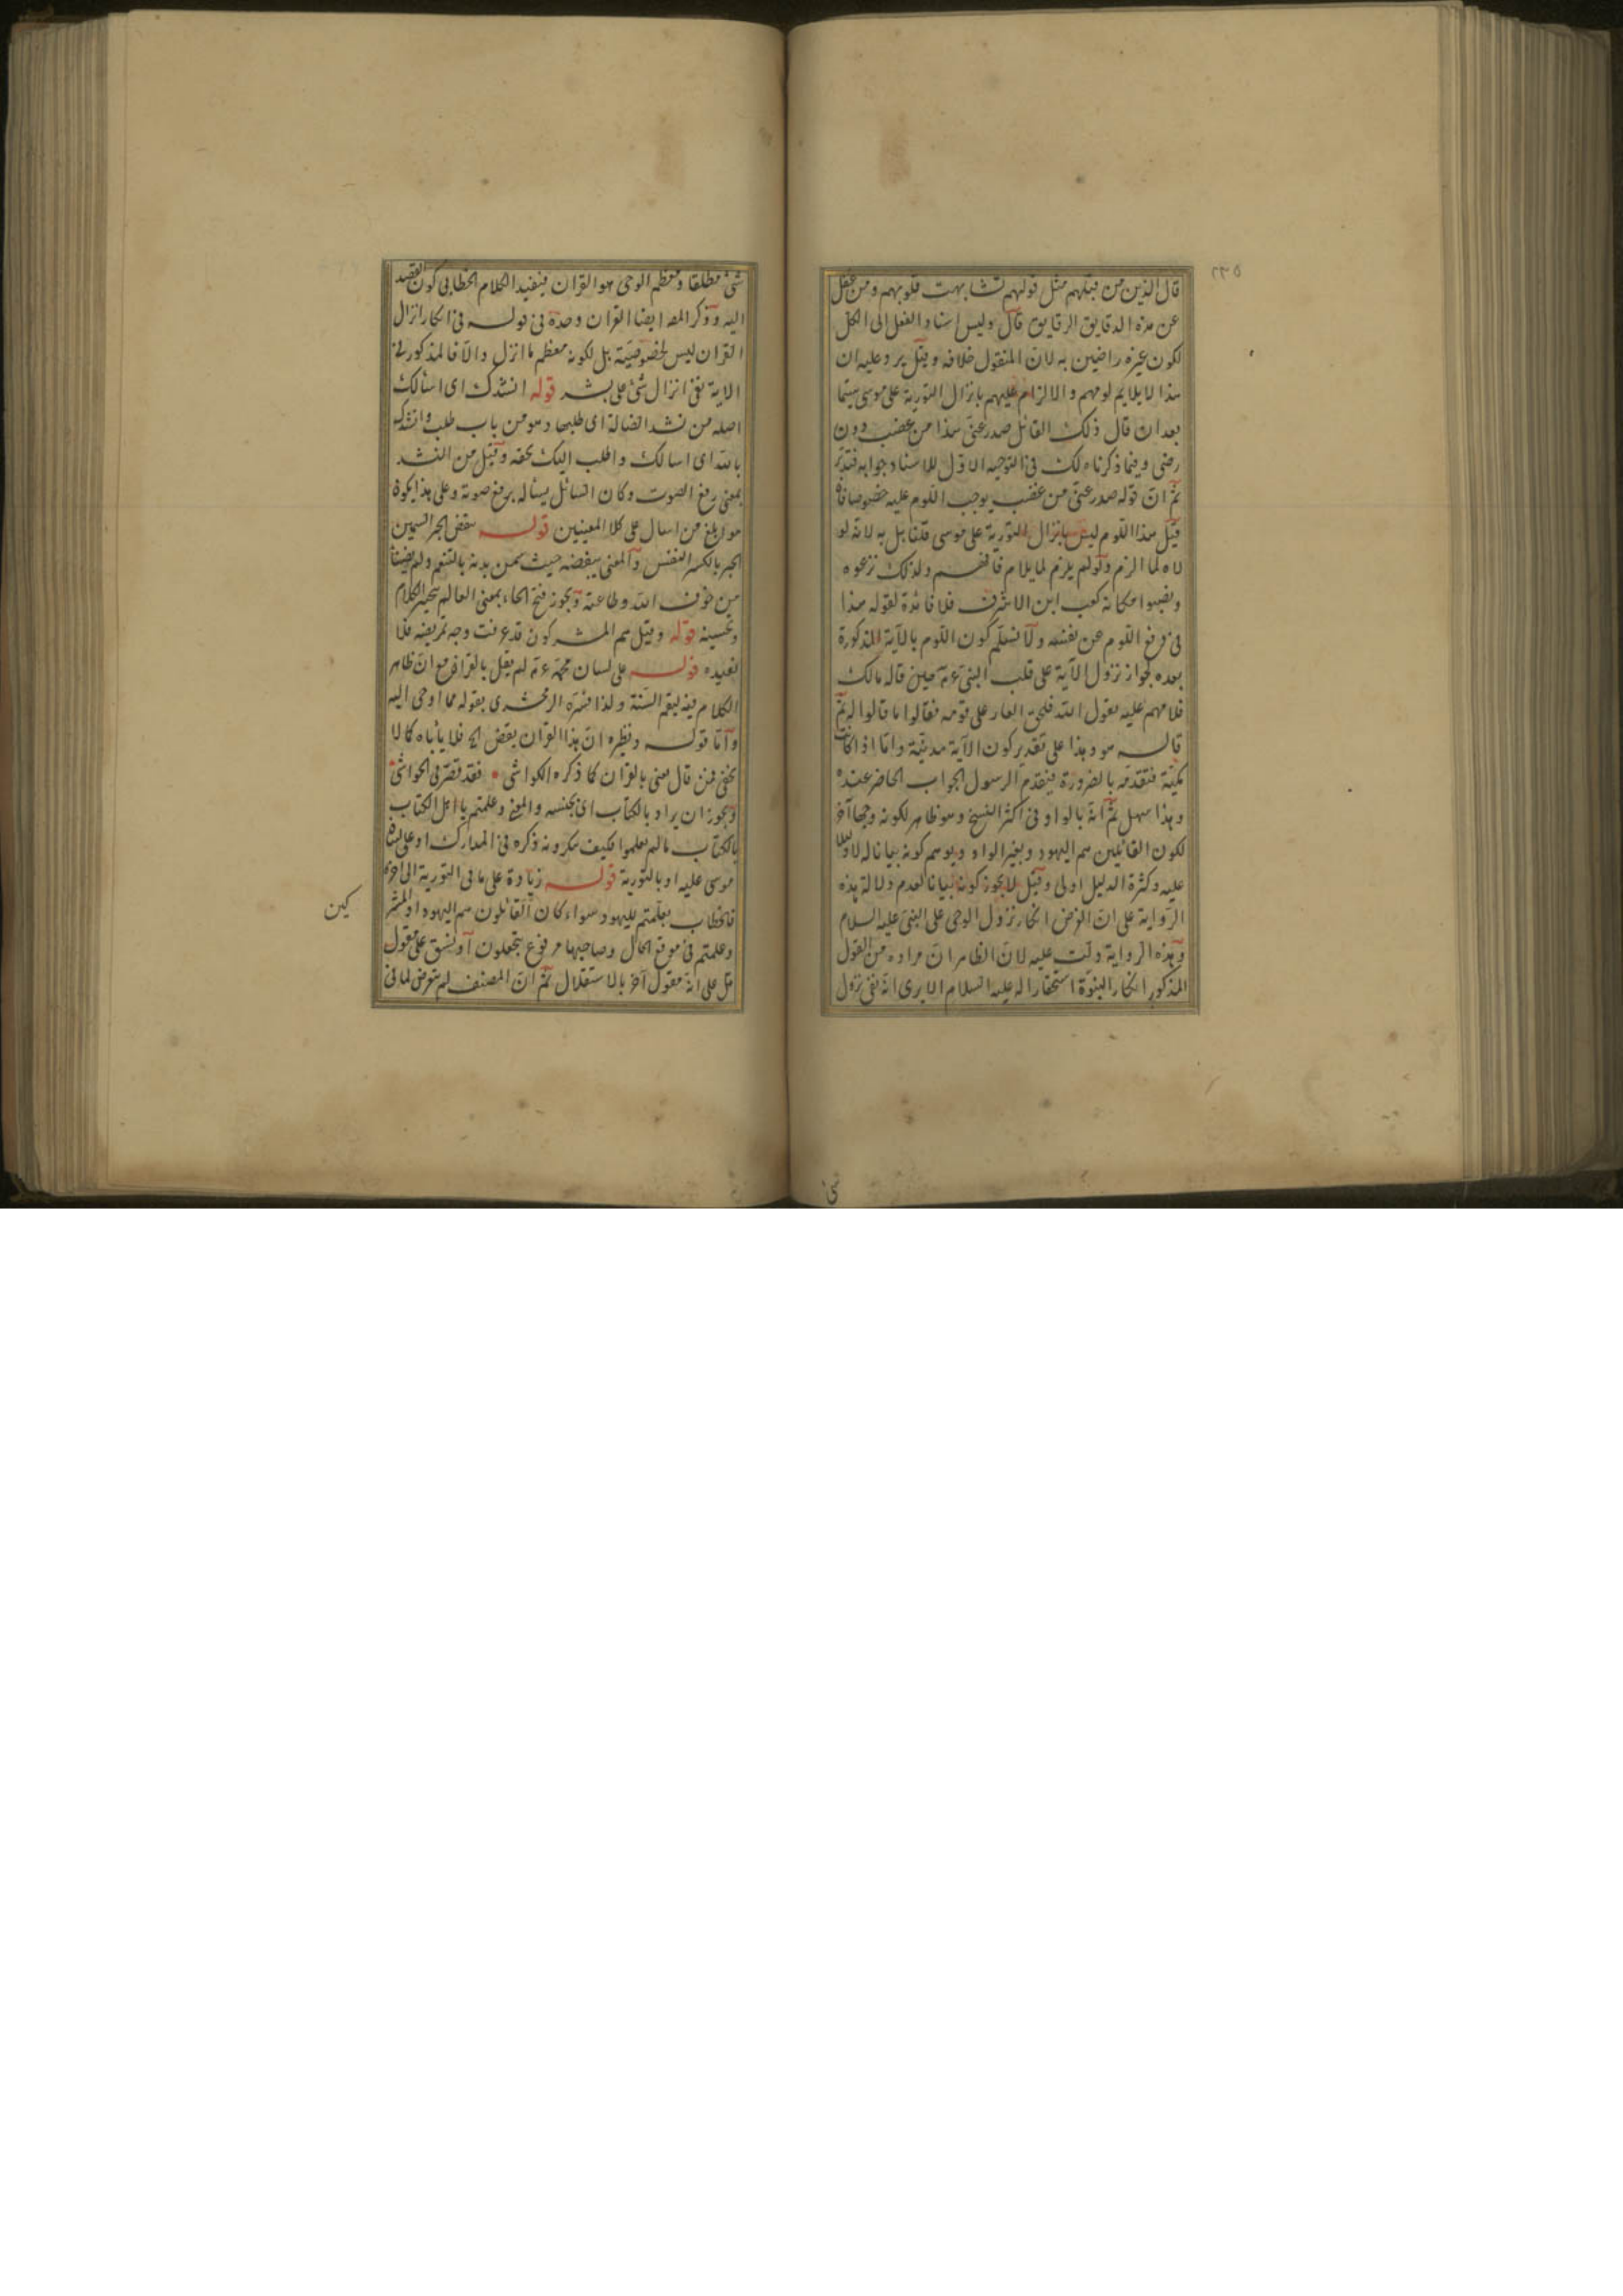 ٢٣٥
قال الذين من قبلهم مثل قولهم تشابهت قلوبهم ومن غفل
عن هذه الدقايق الرقايق قال وليس اسناد الفعل الى الكل
لكون غيره راضين به لان المنقول خلافه وقيل يرد عليه ان
هذا لا يلايم لومهم والالزام عليهم بانزال التورية على موسى سيما
بعد ان قال ذلك القائل صدر عنى هذا من غضب دون
رضى وفيما ذكرناه لك فى التوجيه الاول للاسناد جوابه فتدبر
ثم ان قوله صدر عنى من غضب يوجب اللوم عليه خصوصا فان
قيل هذا اللوم ليس بانزال التورية على موسى قلنا بل به لانه لو
لاه لما الزم ولو لم يلزم لما يلام فافهم ولذلك نزعوه
ونصبوا مكانه كعب ابن الاشرف فلا فائدة لقوله هذا
فى دفع اللوم عن نفسه ولا نسلم كون اللوم بالآية المذكورة
بعده لجواز نزول الآية على قلب النبى عم حين قاله مالك
فلامهم عليه بقول الله فلحق العار على قومه فقالوا ما قالوا له ثم
قاله هو وهذا على تقدير كون الآية مدنية واما اذا كانت
مكية فتقدمه بالضرورة فيتقدم الرسول الجواب الحاضر عنده
وهذا سهل ثم انه بالواو فى اكثر النسخ وهو ظاهر لكونه وجها آخر
لكون القائلين هم اليهود وبغير الواو ويوهم كونه بيانا له لا دليلا
عليه وكثرة الدليل اولى وقيل لا يجوز كونه بيانا لعدم دلالة هذه
الرواية على ان الغرض انكار نزول الوحى على النبى عليه السلام
وهذه الرواية دلت عليه لان الظاهر ان مراده من القول
المذكور انكار النبوة استحقارا له عليه السلام الا يرى انه نفى نزول
شئ مطلقا ومعظم الوحى هو القران فيفيد الكلام الخطابى كون القصد
اليه وذكر المصـ ايضا القران وحده فى قوله فى انكار انزال
القران ليس لخصوصيته بل لكونه معظم ما انزل والا فالمذكور فى
الاية نفى انزال شئ على بشر قوله انشدك اى اسألك
اصله من نشد الضالة اى طلبها وهو من باب طلب وانشدك
بالله اى اسالك واطلب اليك بحقه وقيل من النشد
بمعنى رفع الصوت وكان السائل يسأله برفع صوته وعلى هذا يكون
هو ابلغ من اسال على كلا المعنيين قوله يبغض الحبر السمين
الحبر بالكسر النفس والمعنى يبغضه حيث سمن بدنه بالتنعم ولم يضيفها
من خوف الله وطاعته ويجوز فتح الحاء بمعنى العالم بتحبير الكلام
وتحسينه قوله وقيل هم المشركون قد عرفت وجه تمريضه فلا
نعيده قوله على لسان محمد عم لم يقل بالقران مع ان ظاهر
الكلام فيه ليعم السنة ولذا فسره الزمخشرى بقوله مما اوحى اليه
واما قوله ونظيره ان هذا القران يقص الخ فلا يأباه كما لا
يخفى فمن قال يعنى بالقران كما ذكره الكواشى فقد قصر فى الحواشى
ويجوز ان يراد بالكتاب اى بجنسه والمعنى وعلمتم يا اهل الكتاب
بالكتاب ما لم تعلموا فكيف تنكرونه ذكره فى المدارك او على لسان
موسى عليه او بالتورية قوله زيادة على ما فى التورية الى اخره
فالخطاب بعلمتم لليهود سواء كان القائلون هم اليهود او المشر
كين
وعلمتم فى موقع الحال وصاحبها مرفوع بتجعلون او نسق على مقول
قل على انه مقول آخر بالاستقلال ثم ان المصنف لم يتعرض لما فى